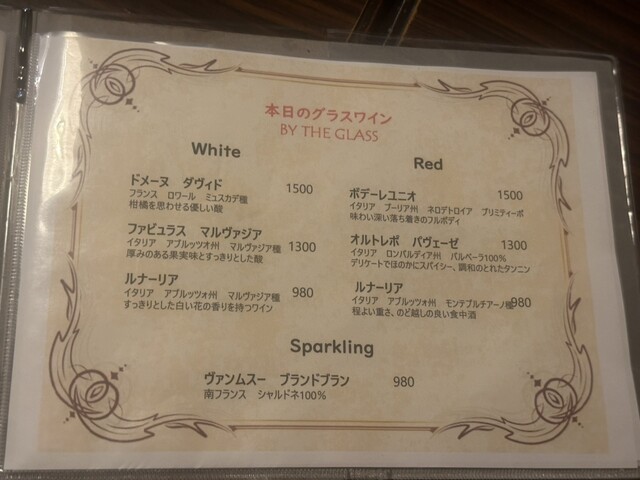 本日のグラスワイン
BY THE GLASS
White
ドメーヌ ダヴィド 1500
フランス ロワール ミュスカデ種
柑橘を思わせる優しい酸
ファビュラス マルヴァジア
イタリア アブルッツオ州 マルヴァジア種 1300
厚みのある果実味とすっきりとした酸
ルナーリア 980
イタリア アブルッツォ州 マルヴァジア種
すっきりとした白い花の香りを持つワイン
Red
ポデーレユニオ 1500
イタリア プーリア州 ネロデトロイア プリミティーボ
味わい深い落ち着きのフルボディ
オルトレポ パヴェーゼ 1300
イタリア ロンバルディア州 バルベーラ100%
デリケートでほのかにスパイシー、調和のとれたタンニン
ルナーリア
イタリア アブルッツォ州 モンテプルチアーノ種980
程よい重さ、のど越しの良い食中酒
Sparkling
ヴァンムスー ブランドブラン 980
南フランス シャルドネ100%